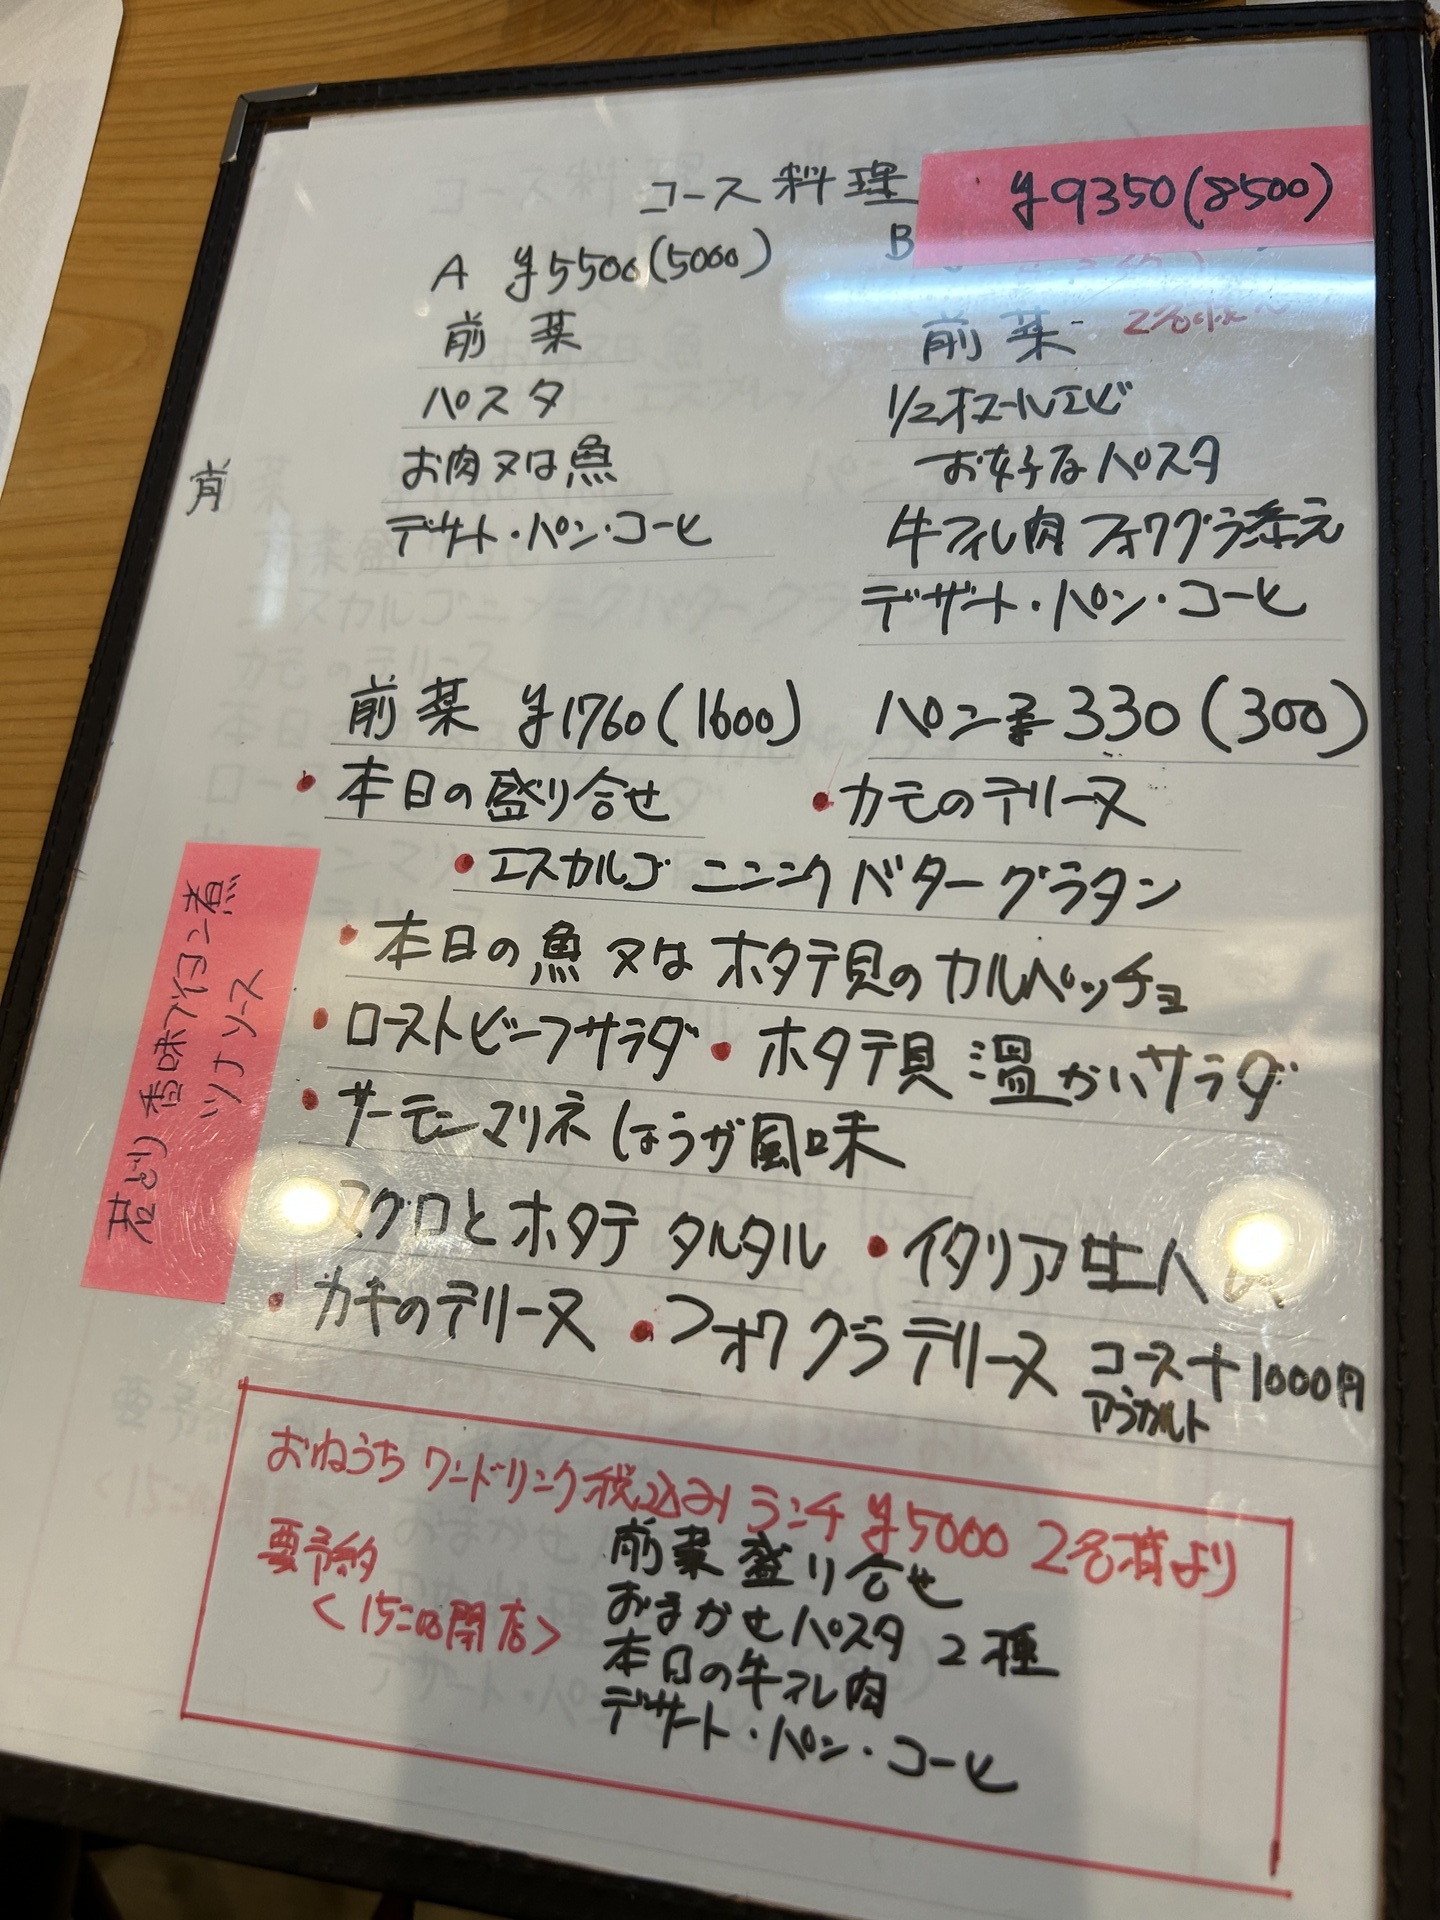 コース料理
¥9350(8500)
A ¥5500(5000)
B
前菜
パスタ
お肉又は魚
デザート・パン・コーヒ
前菜
1/2オマールエビ
お好きなパスタ
牛フィレ肉フォワグラ添え
デザート・パン・コーヒ
前菜 ¥1760(1600)
パン ¥330(300)
・本日の盛り合せ
・カモのテリーヌ
・エスカルゴ ニンニクバターグラタン
・本日の魚又はホタテ貝のカルペッチョ
・ローストビーフサラダ
・ホタテ貝 温かいサラダ
・サーモンマリネ しょうが風味
マグロとホタテ タルタル
・イタリア生ハム
・カキのテリーヌ
・フォワグラテリーヌ コース+1000円
アラカルト
若どり 香味ブイヨン煮
ツナソース
おねうち ワンドリンク税込み ランチ ¥5000 2名様より
要予約
<15:00閉店>
前菜盛り合せ
おまかせパスタ 2種
本日の牛フィレ肉
デザート・パン・コーヒ